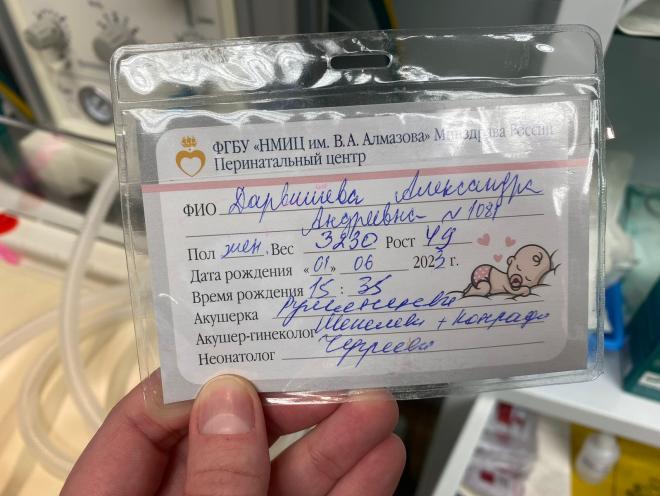 ФГБУ «НМИЦ им. В.А. Алмазова» Минздрава России
Перинатальный центр
ФИО Дарвишева Александра
Андреевна №1081
Пол жен, Вес 3230 Рост 49
Дата рождения «01» 06 2023 г.
Время рождения 15 : 35
Акушерка
Акушер-гинеколог Шепелева + Конради
Неонатолог